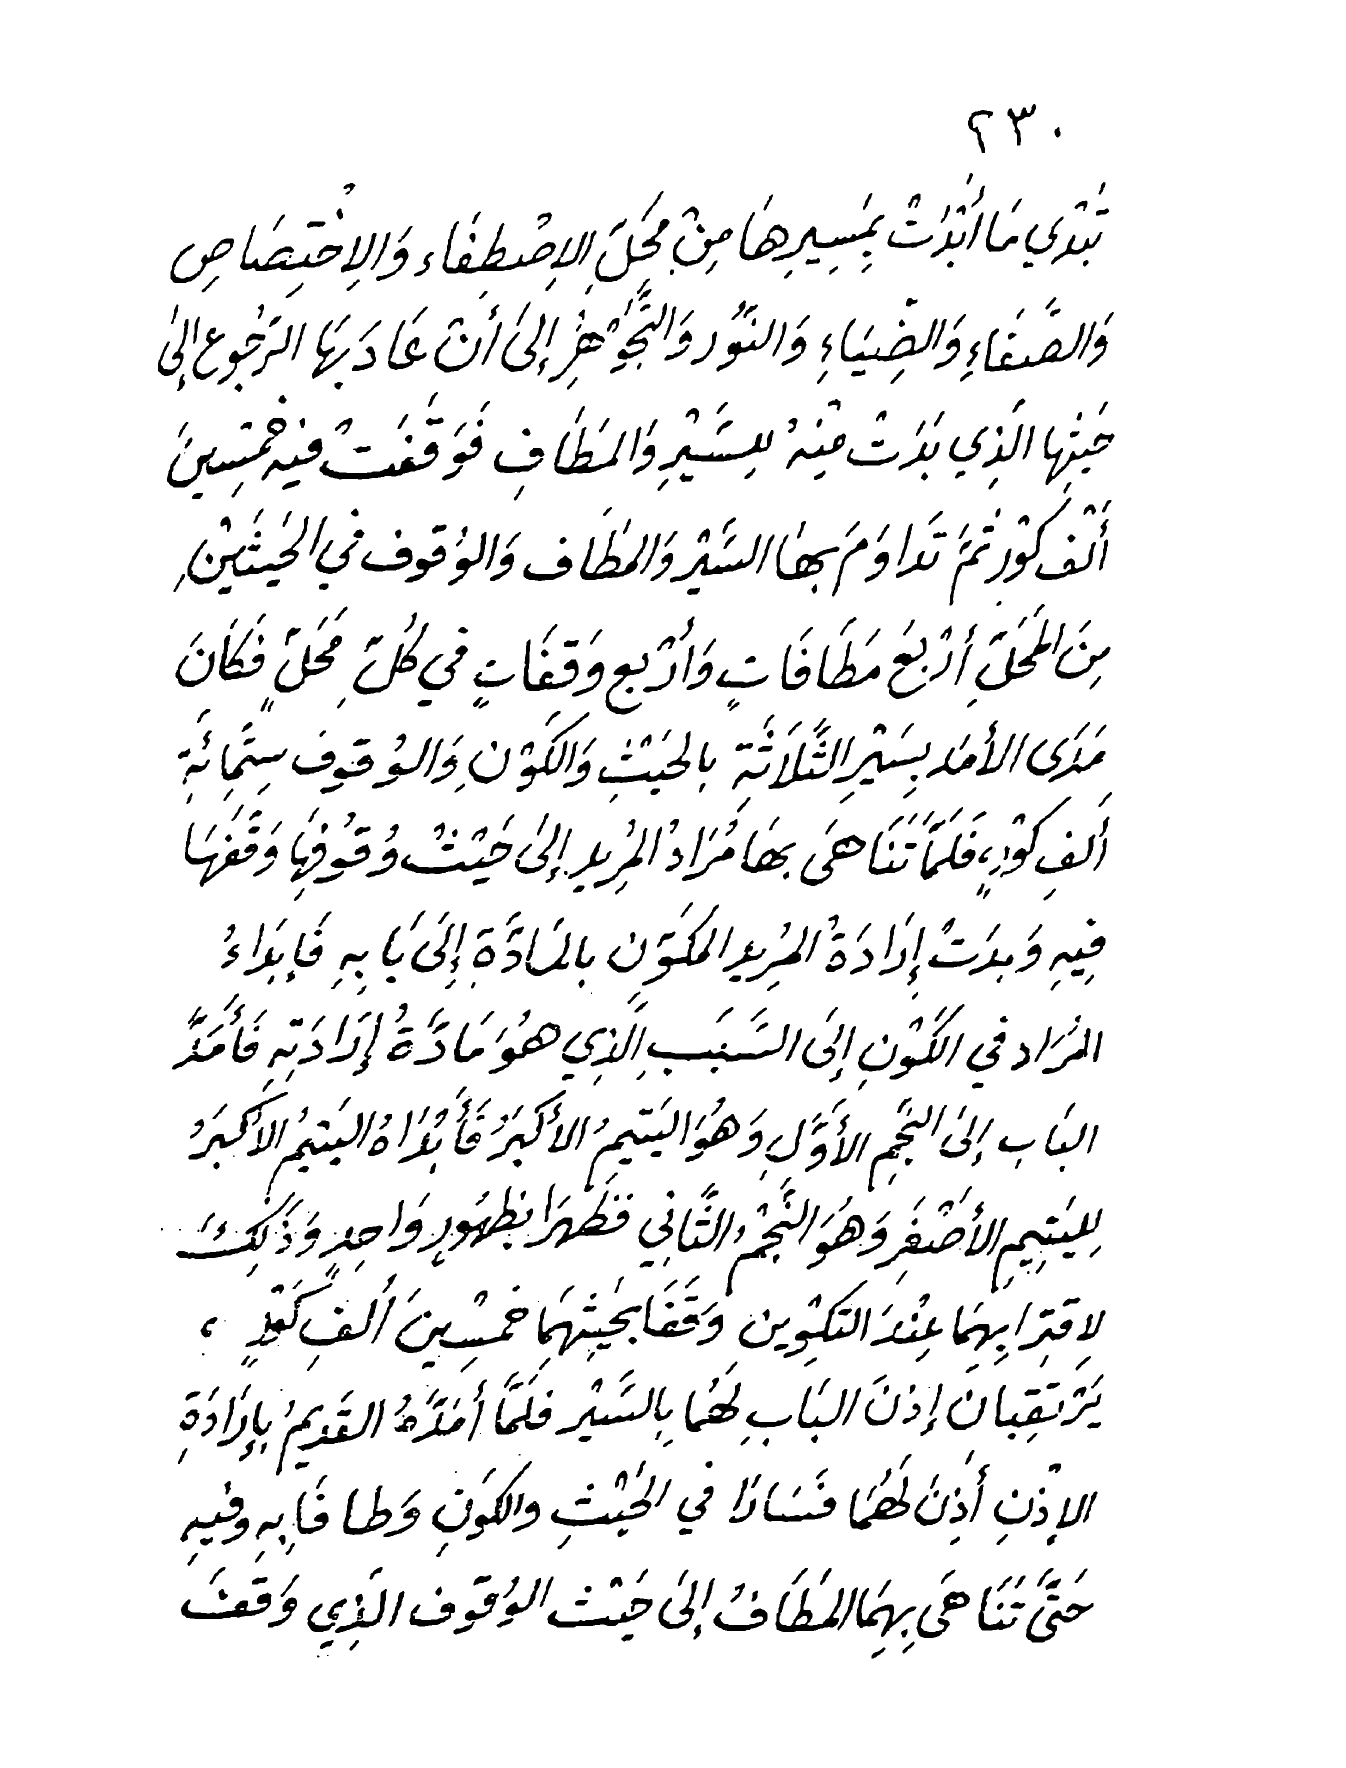 ٢٣٠
تَبْدِي مَا أَبْدَتْ بِمَسِيرِهَا مِنْ مَحَلِّ الِاصْطِفَاء وَالِاخْتِصَاصِ
وَالصَّفَاءِ وَالضِّيَاءِ وَالنُّور وَالتَّجَوْهُرِ إِلَىٰ أَنْ عَادَ بِهَا الرُّجُوع إِلَىٰ
حَيْثِهَا الَّذِي بَدَتْ مِنْهُ لِلسَّيْرِ وَالمَطَافِ فَوَقَفَتْ فِيهِ خَمْسِينَ
أَلْفَ كَوْرٍ ثُمَّ تَدَاوَمَ بِهَا السَّيْر وَالمَطَاف وَالوُقوف في الحَيْثَيْنِ
مِنَ المَحَلِّ أَرْبَعَ مَطَافَاتٍ وَأَرْبع وَقِفَاتٍ في كُلِّ مَحَلٍّ فَكَانَ
مَدَى الأَمَد بِسَيْرِ الثَّلَاثَة بالحَيْثِ وَالكَوْنِ وَالوُقوفِ سِتُّمِائَةِ
أَلفِ كَوْرٍ، فَلَمَّا تَنَاهَى بِهَا مُرَادُ المُرِيدِ إِلَىٰ حَيْثُ وُقُوفِهَا وَقَفَهَا
فِيهِ وَبدَتْ إِرَادَةُ المُرِيد المُكَوِّن بالمَادَّةِ إِلَىٰ بَابِهِ فَإِبدَاءُ
المُرَاد في الكَوْنِ إِلَى السَّبَبِ الَّذِي هُوَ مَادَّةُ إِرَادَتِهِ فَأَمَدَّ
البَاب إِلَىٰ النَّجمِ الأَوَّلِ وَهُوَ اليَتِيمُ الأَكبَرُ فَأَبْدَاهُ اليَتِيمُ الأَكبَرُ
لِليَتِيمِ الأَصْغَرِ وَهُوَ النَّجْمُ الثَّانِي فَظَهَرَا بظهُورٍ وَاحِدٍ وَذَلِكَ
لِاقتِرَابِهِمَا عِنْدَ التكوِين وَقَفَا بحَيْثِهِمَا خَمْسِينَ أَلفِ كَوْرٍ ،
يَرْتَقِبان إِذنَ البَابِ لَهُمَا بِالسَّيْر فَلَمَّا أَمَدَّهُ القَدِيمُ بِإِرَادَةِ
الإِذْنِ أَذِنَ لَهُمَا فَسَارَا في الحَيْثِ والكَوَنِ وَطا فَا بِهِ وفيهِ
حَتَّىٰ تَنَاهَى بِهِمَا المَطَافُ إِلَىٰ حَيْث الوُقوف الَّذِي وَقَفَ